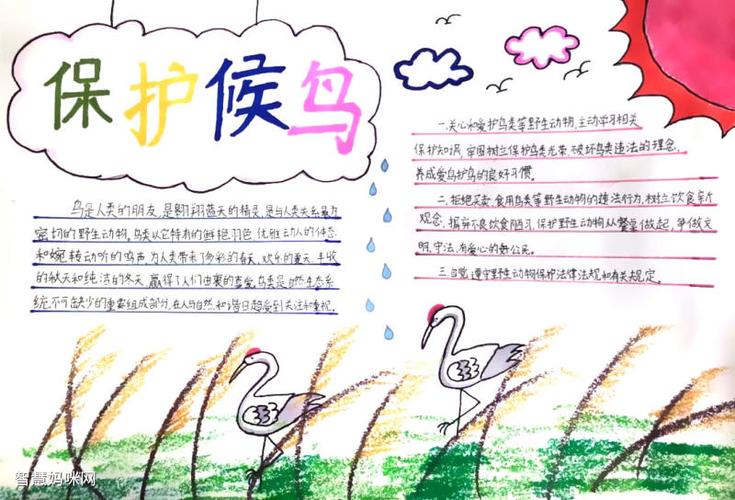 保护候鸟
鸟是人类的朋友,是翱翔蓝天的精灵,是与人类关系最为
密切的野生动物。鸟类以它特有的鲜艳羽色、优雅动人的体态
和婉转动听的鸣声,为人类带来了多彩的春天、欢乐的夏天、丰收
的秋天和纯洁的冬天,赢得了人们由衷的喜爱。鸟类是自然生态系
统不可缺少的重要组成部分,在人与自然和谐日趋受到关注和重视。
一.关心和爱护鸟类等野生动物,主动学习相关
保护知识,牢固树立保护鸟类光荣、破坏鸟类违法的理念,
养成爱鸟护鸟的良好习惯。
二.拒绝买卖、食用鸟类等野生动物的违法行为,树立饮食新
观念,摒弃不良饮食陋习,保护野生动物从餐桌做起,争做文
明、守法、有爱心的好公民。
三.自觉遵守野生动物保护法律法规和有关规定。
智慧妈咪网